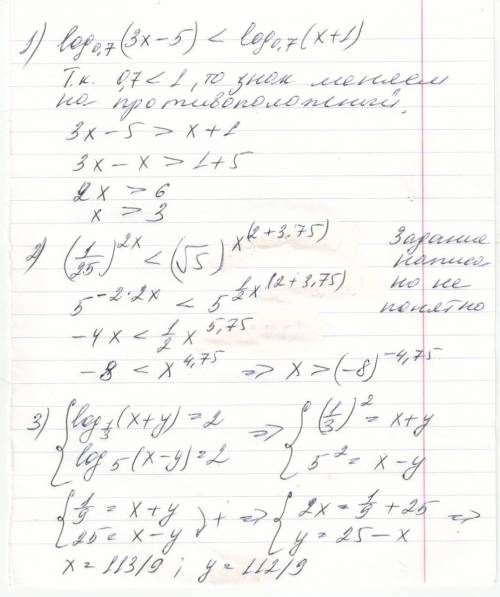 1) log₀,₇(3x−5) < log₀,₇(x+1)
Т.к. 0,7<1, то знак меняем
на противоположный.
3x−5 > x+1
3x−x > 1+5
2x > 6
x > 3
2) (1/25)^(2x) < (√5)^(x^(2+3,75))
Задание
написа
но не
понятно
5^(−2·2x) < 5^(1/2 x^(2+3,75))
−4x < 1/2 x^(5,75)
−8 < x^(4,75) => x > (−8)^(−4,75)
3) { log_(1/3)(x+y) = 2 => { (1/3)² = x+y
{ log₅(x−y) = 2 { 5² = x−y
{ 1/9 = x+y } + => { 2x = 1/9 + 25 =>
{ 25 = x−y { y = 25−x
x = 113/9 ; y = 112/9